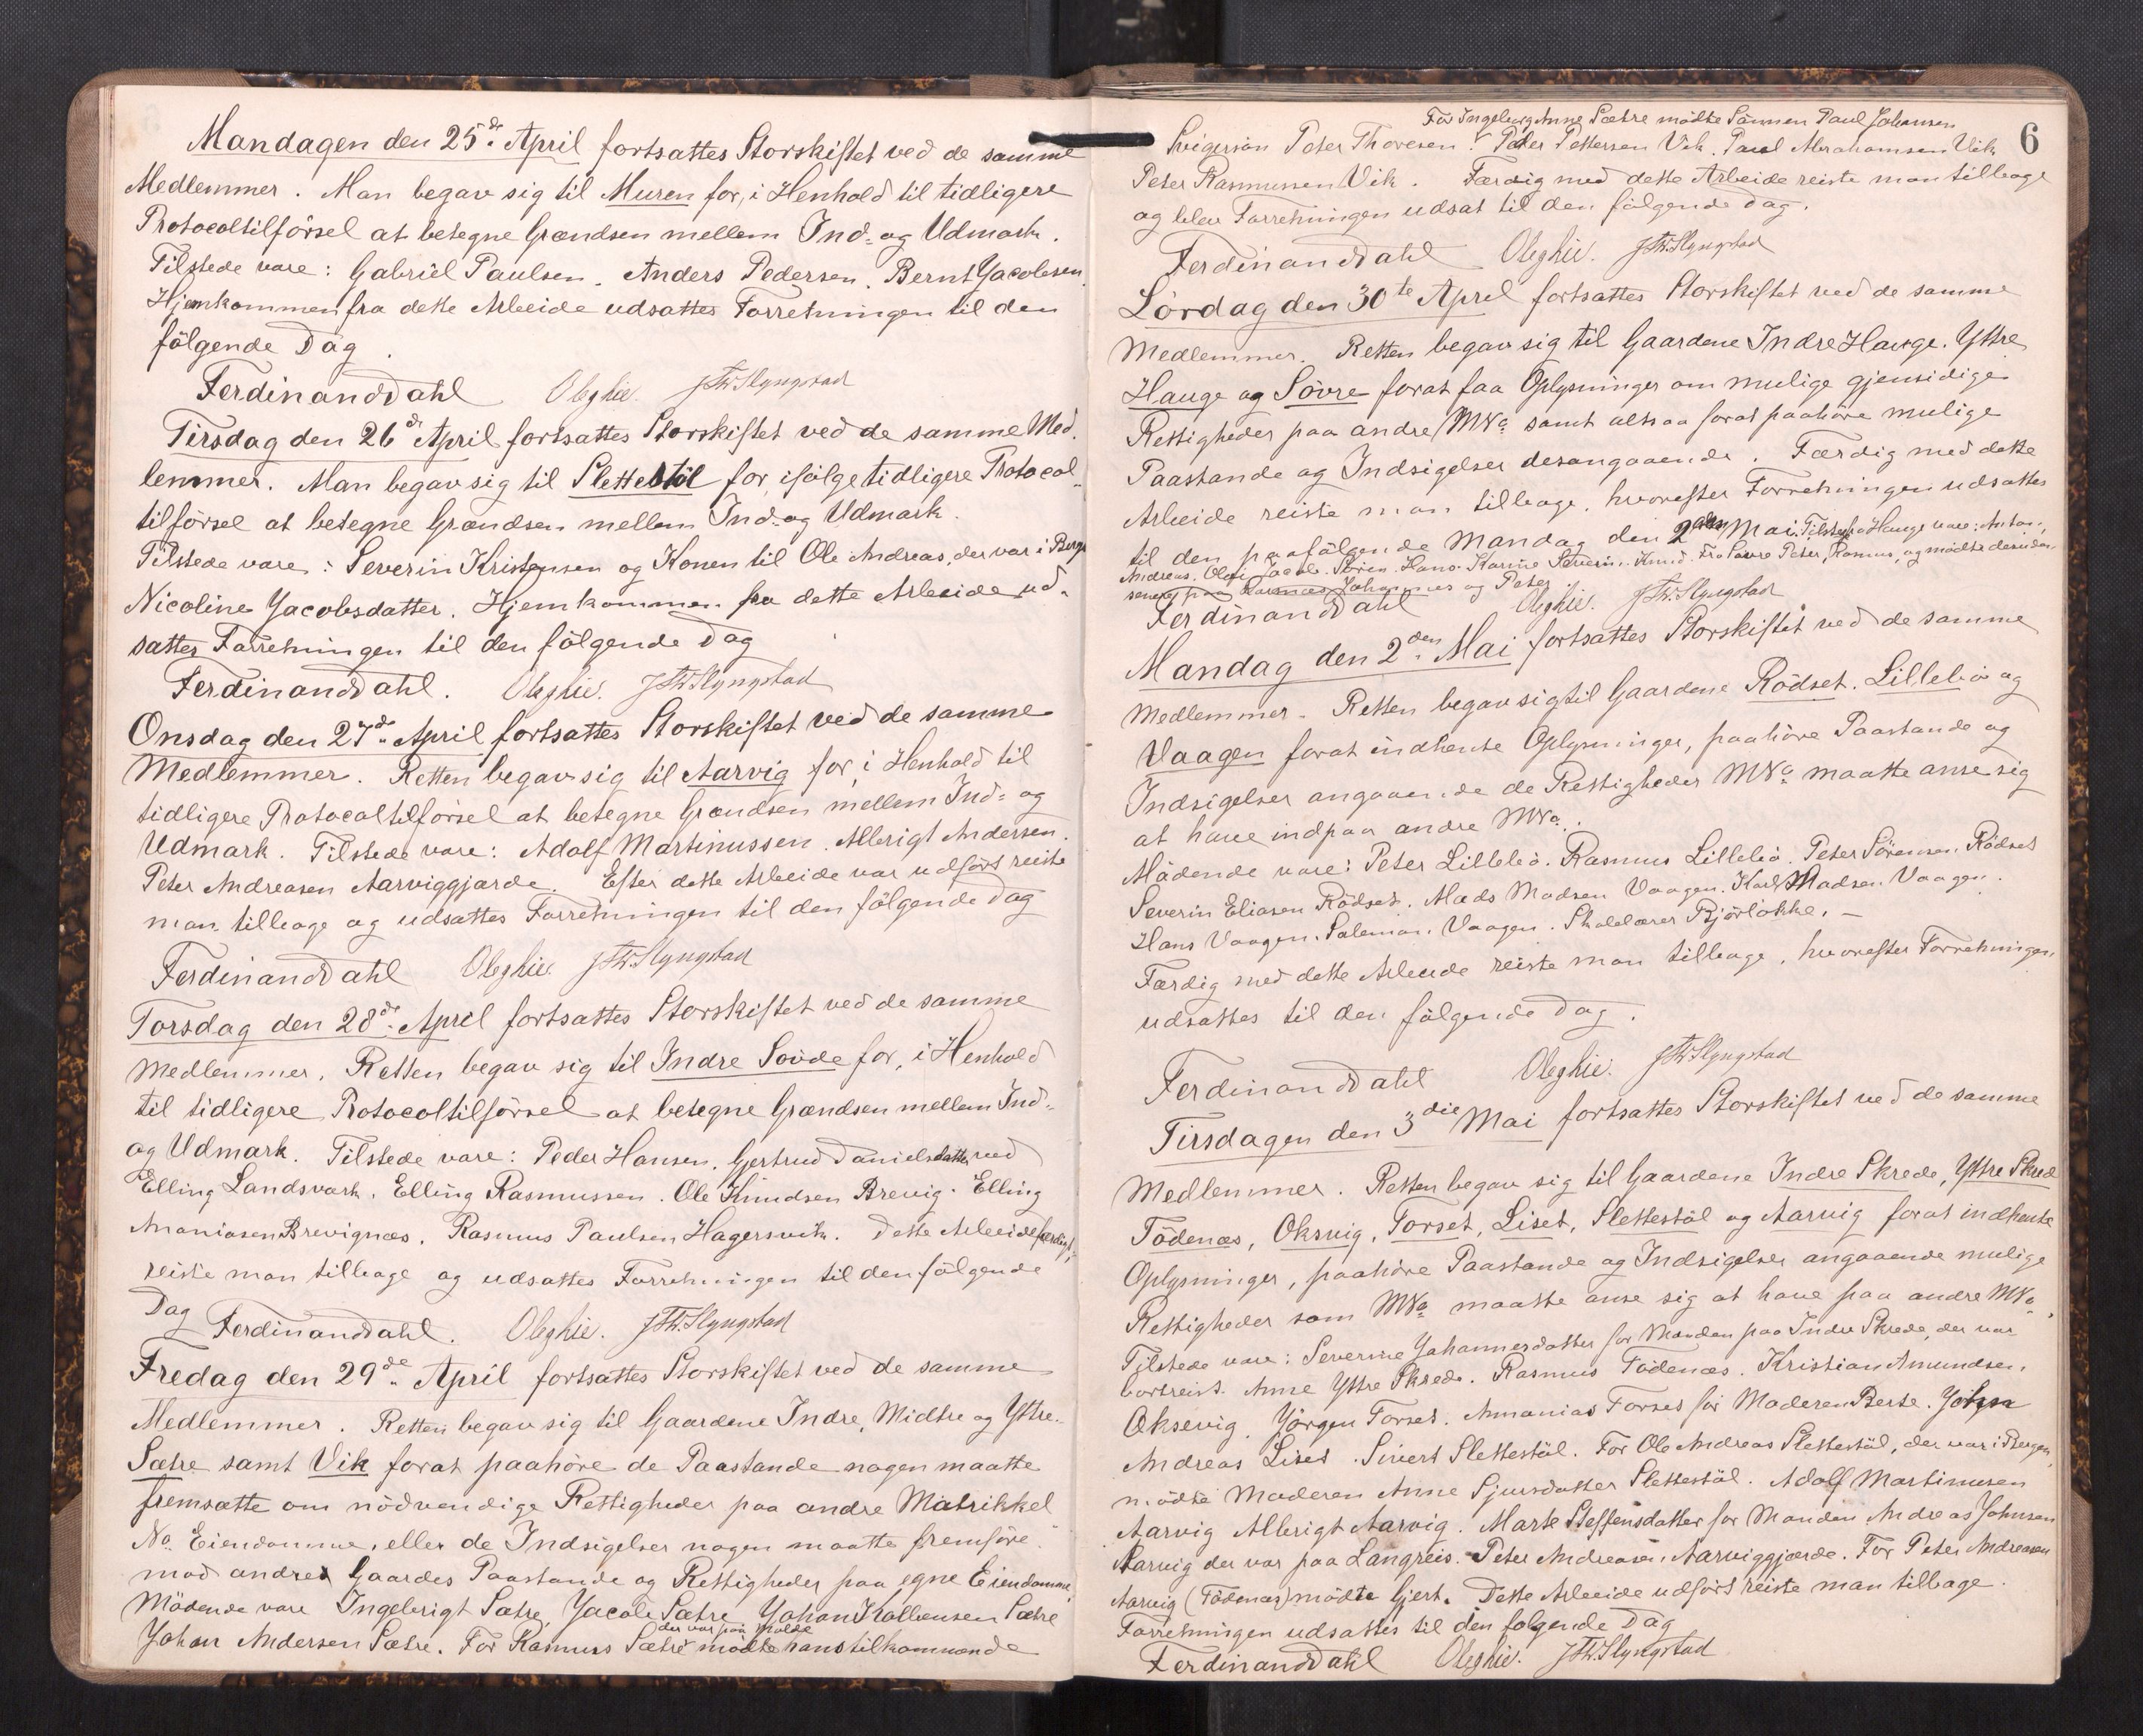 Mandagen den 25de April fortsattes Storskiftet ved de samme
Medlemmer. Man begav sig til Muren for, i Henhold til tidligere
Protocoltilförsel at betegne Grændsen mellem Ind- og Udmark.
Tilstede vare: Gabriel Paulsen. Anders Pedersen. Bernt Jacobsen.
Hjemkommen fra dette Arbeide udsattes Forretningen til den
fölgende Dag.
Ferdinand Dahl
Tirsdag den 26de April fortsattes Storskiftet ved de samme Med-
lemmer. Man begav sig til Slettestöl for, ifölge tidligere Protocol-
tilförsel at betegne Grændsen mellem Ind- og Udmark.
Tilstede vare: Severin Kristensen og Konen til Ole Andreas, der var i Bergen
Nicoline Jacobsdatter. Hjemkommen fra dette Arbeide ud-
sattes Forretningen til den fölgende Dag
Ferdinand Dahl.
Onsdag den 27de April fortsattes Storskiftet ved de samme
Medlemmer. Retten begav sig til Aarvig for, i Henhold til
tidligere Protocoltilförsel at betegne Grændsen mellem Ind- og
Udmark. Tilstede vare: Adolf Martinussen. Albrigt Andersen.
Peter Andreasen Aarviggjærde. Efter dette Arbeide var udfört reiste
man tilbage og udsattes Forretningen til den fölgende Dag
Ferdinand Dahl
Torsdag den 28de April fortsattes Storskiftet ved de samme
Medlemmer. Retten begav sig til Indre Sövde for, i Henhold
til tidligere Protocoltilförsel at betegne Grændsen mellem Ind-
og Udmark. Tilstede vare: Peder Hansen. Gjertrud Danielsdatter ved
Elling Landsvark. Elling Rasmussen. Ole Knudsen Brevig. Elling
Ananiasen Brevignæs. Rasmus Paulsen Hagersvik. Dette Arbeide færdigt,
reiste man tilbage og udsattes Forretningen til den fölgende
Dag
Ferdinand Dahl.
Fredag den 29de April fortsattes Storskiftet ved de samme
Medlemmer. Retten begav sig til Gaardene Indre, Midtre og Yttre
Sætre samt Vik forat paahöre de Paastande nogen maatte
fremsætte om nödvendige Rettigheder paa andre Matrikkel
No. Eiendomme, eller de Indsigelser nogen maatte fremföre
mod andres Gaardes Paastande og Rettigheder paa egne Eiendomme.
Mödende vare Ingebrigt Sætre, Jacob Sætre, Johan Kolbensen Sætre
Johan Andersen Sætre. For Rasmus Sætre der var paa Molde mödte hans tilkommende
6
For Ingeborg Anne Sætre mödte Sönnen Paul Johansen
Svigersön Peter Thoresen. Peder Pettersen Vik. Paul Abrahamsen Vik
Peter Rasmussen Vik. Færdig med dette Arbeide reiste man tilbage
og blev Forretningen udsat til den fölgende Dag.
Ferdinand Dahl
Lördag den 30te April fortsattes Storskiftet ved de samme
Medlemmer. Retten begav sig til Gaardene Indre Hauge, Yttre
Hauge og Sövre forat faa Oplysninger om mulige gjensidige
Rettigheder paa andre MNo. samt altsaa forat paahöre mulige
Paastande og Indsigelser desangaaende. Færdig med dette
Arbeide reiste man tilbage, hvorefter Forretningen udsattes
til den paafölgende Mandag den 2den Mai. Tilstede fra Hauge vare: Anton,
Andreas, Olai, Jacob, Sören, Hans, Karine Severin, Knud. Fra Sövre Peter, Rasmus, og mödte desuden
senere Johannes og Peter
Ferdinand Dahl
Mandag den 2den Mai fortsattes Storskiftet ved de samme
Medlemmer. Retten begav sig til Gaardene Rödset, Lillebö og
Vaagen forat indhente Oplysninger, paahöre Paastande og
Indsigelser angaaende de Rettigheder MNo. maatte anse sig
at have indpaa andre MNo.
Mödende vare: Peter Lillebö. Rasmus Lillebö. Peter Sörensen Rödset
Severin Eliasen Rödset. Mads Madsen Vaagen. Karl Madsen Vaagen.
Hans Vaagen. Salemon Vaagen. Skolelærer Björlökke. —
Færdig med dette Arbeide reiste man tilbage, hvorefter Forretningen
udsattes til den fölgende Dag.
Ferdinand Dahl
Tirsdagen den 3die Mai fortsattes Storskiftet ved de samme
Medlemmer. Retten begav sig til Gaardene Indre Skrede, Yttre Skrede
Födenæs, Oksvig, Torset, Liset, Slettestöl og Aarvig forat indhente
Oplysninger, paahöre Paastande og Indsigelser angaaende mulige
Rettigheder som MNo. maatte anse sig at have paa andre MNo.
Tilstede vare: Severine Johannesdatter for Manden paa Indre Skrede, der var
bortreist. Anne Yttre Skrede. Rasmus Födenæs. Kristian Amundsen
Oksevig. Jörgen Torset. Annanias Torset for Moderen Berte. Johan
Andreas Liset. Sivert Slettestöl. For Ole Andreas Slettestöl, der var i Bergen,
mödte Moderen Anne Sjursdatter Slettestöl. Adolf Martinusen
Aarvig Albrigt Aarvig. Marte Steffensdatter for Manden Andreas Johnsen
Aarvig der var paa Langreis. Peter Andreasen Aarviggjærde. For Peter Andreasen
Aarvig (Födenæs) mödte Gjert. Dette Arbeide udfört reiste man tilbage.
Forretningen udsattes til den fölgende Dag
Ferdinand Dahl